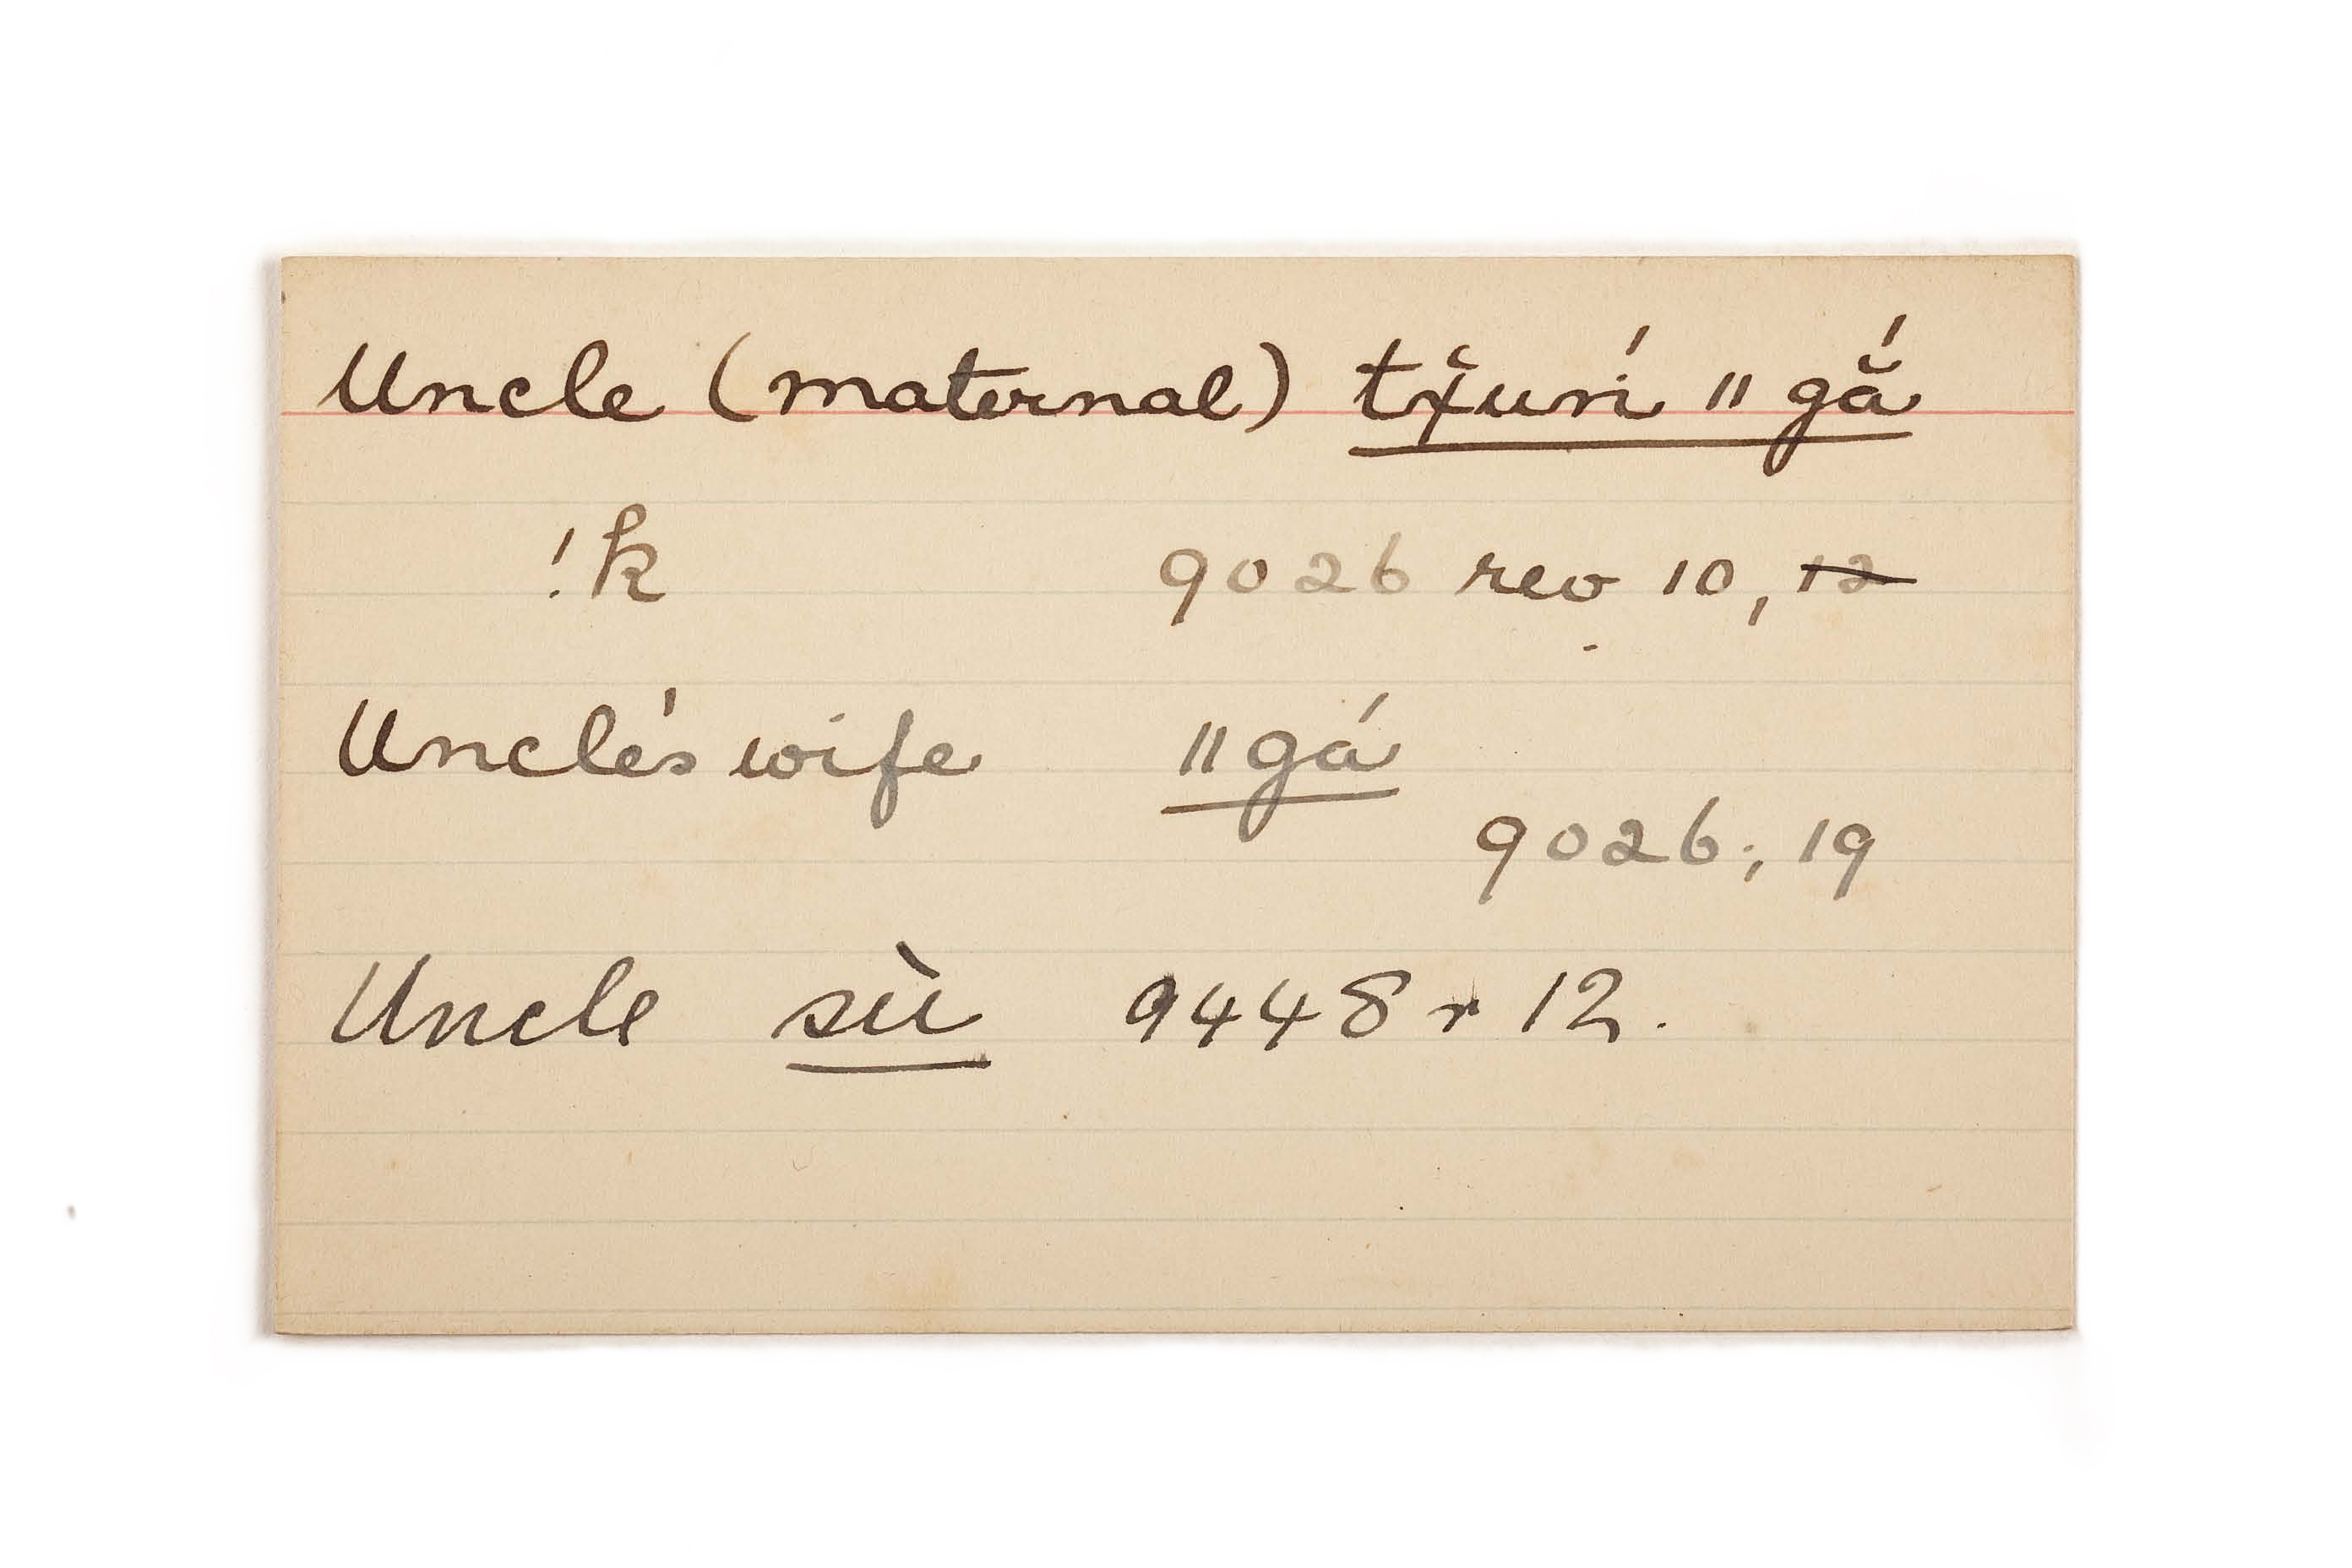 Uncle (maternal) tx̆uń ǁ gắ
!k 9026 rev 10, 12
Uncle's wife ǁ gá
9026; 19
Uncle sù 9448 r 12.